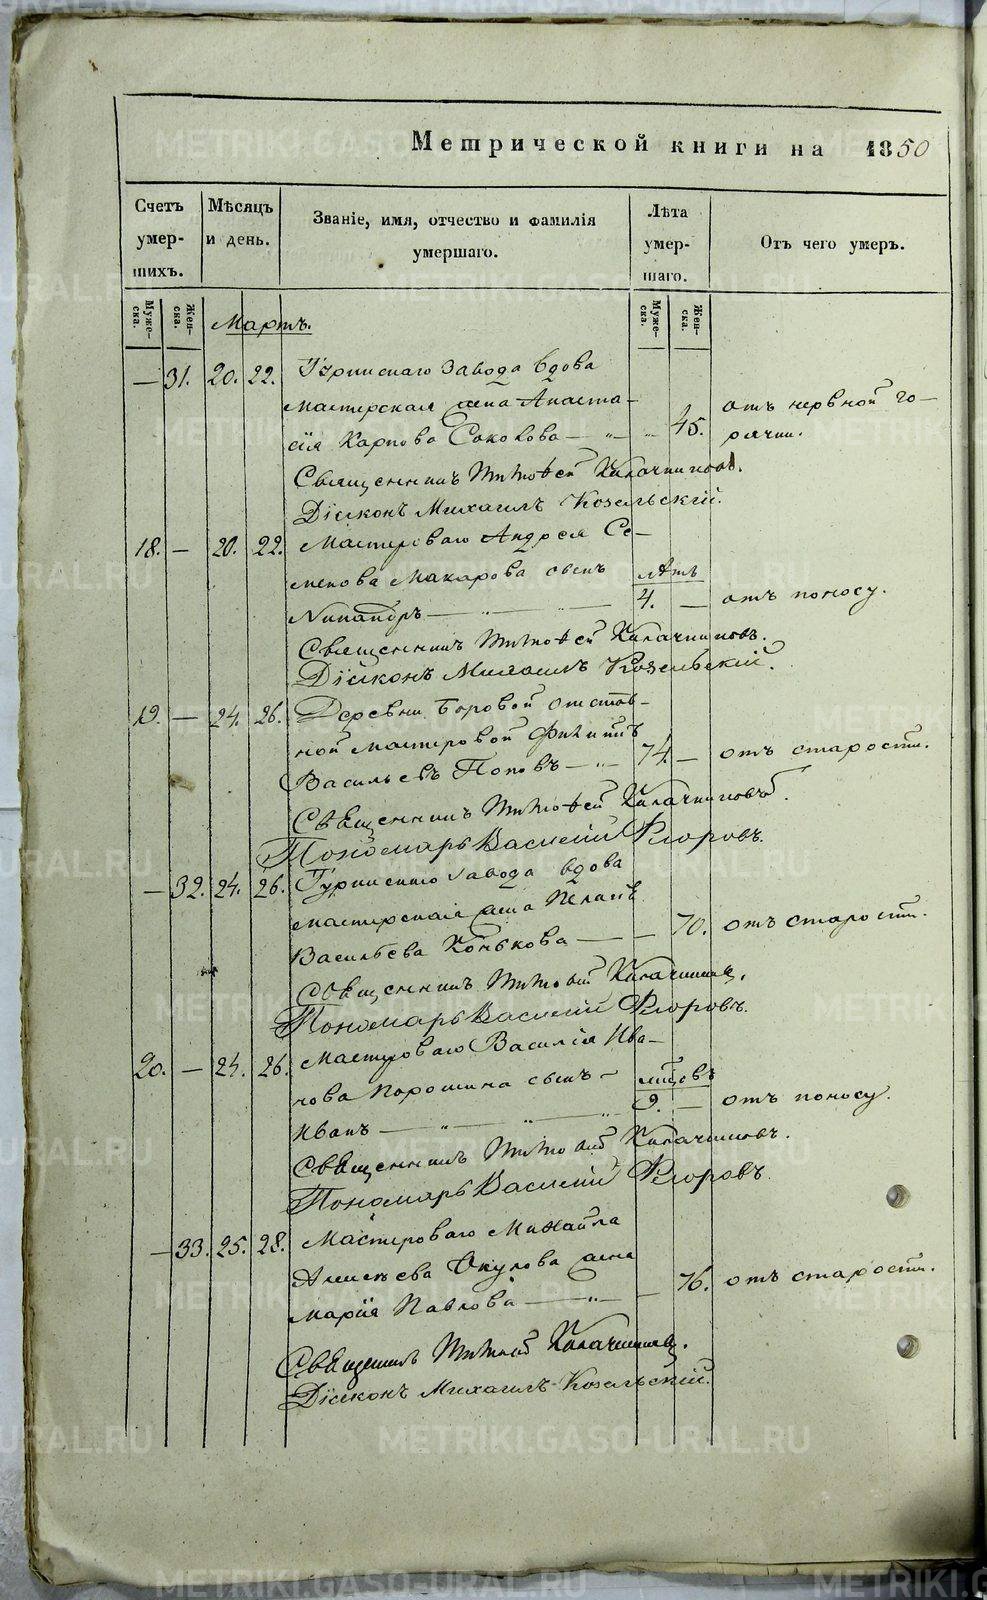 Метрической книги на 1850
Счетъ умер- шихъ.
Мѣсяцъ и день.
Званіе, имя, отчество и фамилія умершаго.
Лѣта умер- шаго.
Отъ чего умеръ.
Муже- ска.
Жен- ска.
Муже- ска.
Жен- ска.
Мартъ.
— 31. 20. 22. завода вдова
мастерская жена Анаста-
сія Карпова Соколова — „ — „ 45. отъ нервной го-
рячки.
Священникъ Тимоѳей
Діаконъ Михаилъ Козельскій.
18. — 20. 22. Мастероваго Андрея Се-
менова Макарова сынъ лѣтъ
Никандръ — „ — 4. — отъ поносу.
Священникъ Тимоѳей
Діаконъ Михаилъ Козельскій.
19. — 24. 26. Деревни Боровой отстав-
ной мастеровой Филиппъ
Васильевъ Поповъ — „ — 74. — отъ старости.
Священникъ Тимоѳей
Пономарь Василій Флоровъ.
— 32. 24. 26. завода вдова
мастерская жена
Васильева Конькова — — 70. отъ старости.
Священникъ Тимоѳей
Пономарь Василій Флоровъ.
20. — 24. 26. Мастероваго Василія Ива-
нова Порошина сынъ — мѣсяцовъ
Иванъ — „ — „ — „ 9. — отъ поносу.
Священникъ Тимоѳей
Пономарь Василій Флоровъ.
— 33. 25. 28. Мастероваго Михайла
Алексѣева Окулова жена
Марія Павлова — „ — — 76. отъ старости.
Священникъ Тимоѳей
Діаконъ Михаилъ Козельскій.
METRIKI.GASO-URAL.RU